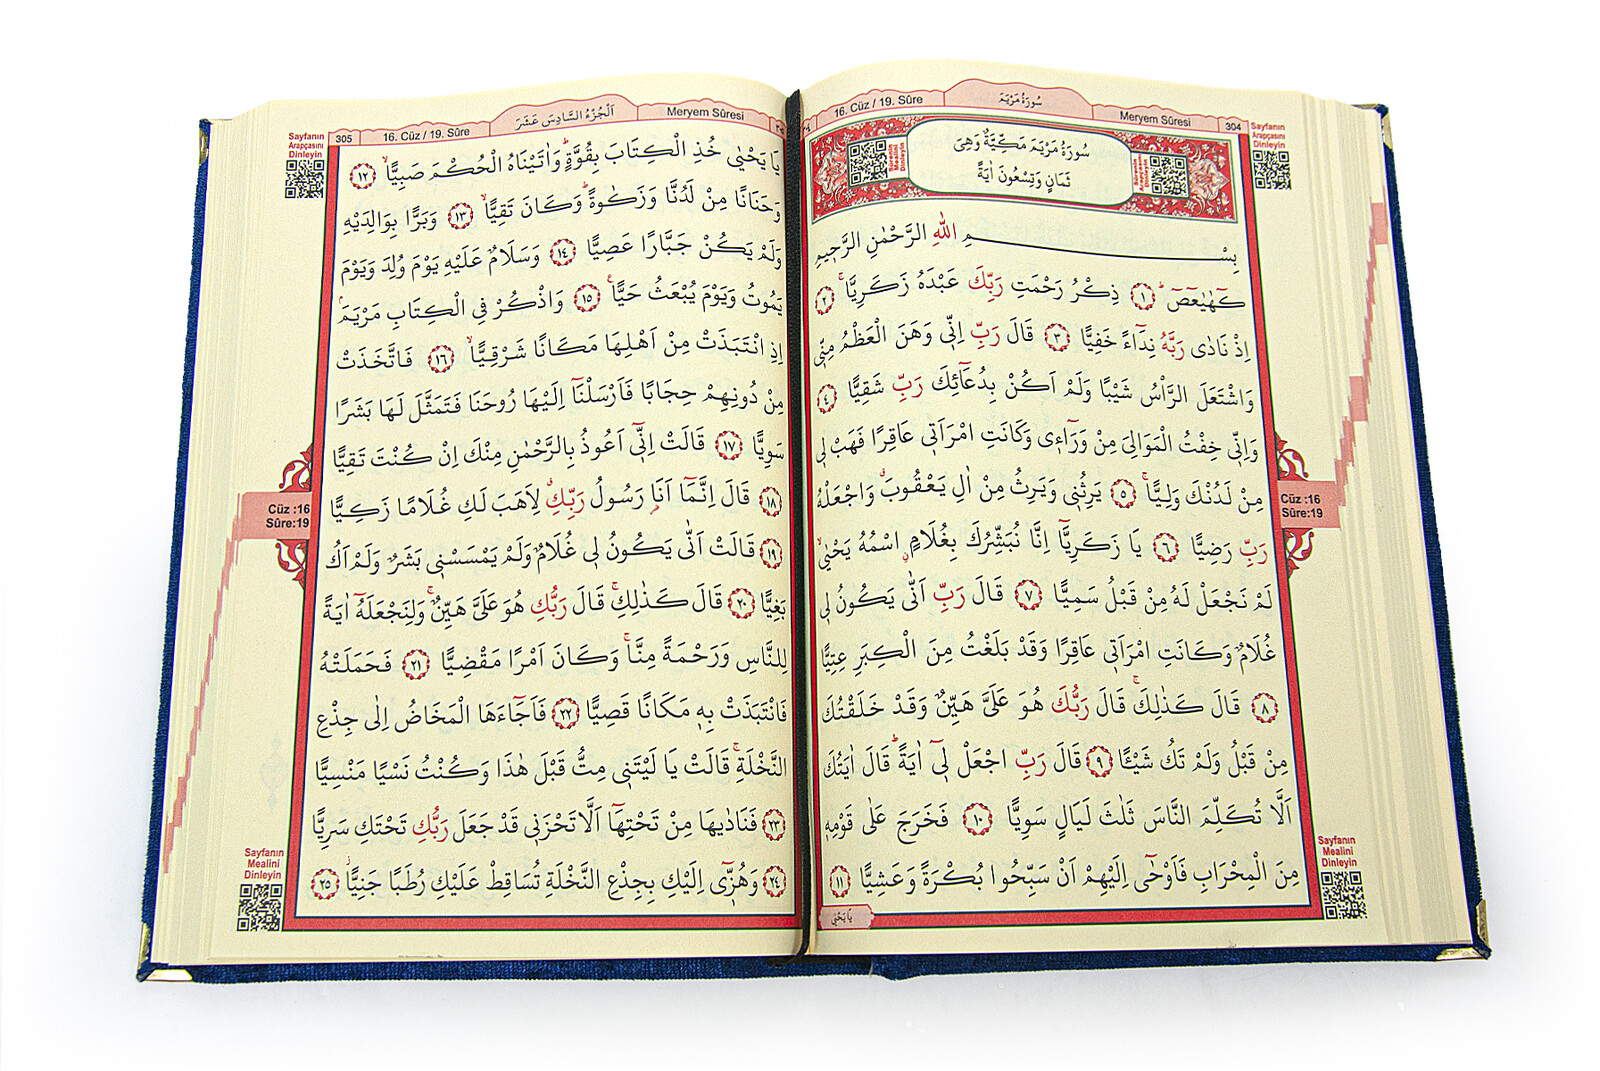 304
Meryem Sûresi
سُورَةُ مَرْيَمَ
16. Cüz / 19. Sûre
Sayfanın
Arapçasını
Dinleyin
سُورَةُ مَرْيَمَ مَكِّيَّةٌ وَهِيَ
ثَمَانٍ وَتِسْعُونَ اٰيَةً
بِسْمِ اللّٰهِ الرَّحْمٰنِ الرَّح۪يمِ
كٓهٰيٰعٓصٓ ۜ ﴿١﴾ ذِكْرُ رَحْمَتِ رَبِّكَ عَبْدَهُ زَكَرِيَّا ۚ ﴿٢﴾
اِذْ نَادٰى رَبَّهُ نِدَٓاءً خَفِيًّا ﴿٣﴾ قَالَ رَبِّ اِنّ۪ي وَهَنَ الْعَظْمُ مِنّ۪ي
وَاشْتَعَلَ الرَّأْسُ شَيْبًا وَلَمْ اَكُنْ بِدُعَٓائِكَ رَبِّ شَقِيًّا ﴿٤﴾
وَاِنّ۪ي خِفْتُ الْمَوَالِيَ مِنْ وَرَٓاء۪ى وَكَانَتِ امْرَاَت۪ي عَاقِرًا فَهَبْ ل۪ي
مِنْ لَدُنْكَ وَلِيًّا ۙ ﴿٥﴾ يَرِثُن۪ي وَيَرِثُ مِنْ اٰلِ يَعْقُوبَ ۗ وَاجْعَلْهُ
رَبِّ رَضِيًّا ﴿٦﴾ يَا زَكَرِيَّٓا اِنَّا نُبَشِّرُكَ بِغُلَامٍ ۨ اسْمُهُ يَحْيٰى ۙ
لَمْ نَجْعَلْ لَهُ مِنْ قَبْلُ سَمِيًّا ﴿٧﴾ قَالَ رَبِّ اَنّٰى يَكُونُ ل۪ي
غُلَامٌ وَكَانَتِ امْرَاَت۪ي عَاقِرًا وَقَدْ بَلَغْتُ مِنَ الْكِبَرِ عِتِيًّا
﴿٨﴾ قَالَ كَذٰلِكَ ۚ قَالَ رَبُّكَ هُوَ عَلَيَّ هَيِّنٌ وَقَدْ خَلَقْتُكَ
مِنْ قَبْلُ وَلَمْ تَكُ شَيْـًٔا ﴿٩﴾ قَالَ رَبِّ اجْعَلْ ل۪ٓي اٰيَةً ۜ قَالَ اٰيَتُكَ
اَلَّا تُكَلِّمَ النَّاسَ ثَلٰثَ لَيَالٍ سَوِيًّا ﴿١٠﴾ فَخَرَجَ عَلٰى قَوْمِه۪
مِنَ الْمِحْرَابِ فَاَوْحٰٓى اِلَيْهِمْ اَنْ سَبِّحُوا بُكْرَةً وَعَشِيًّا ﴿١١﴾
يَا يَحْيٰى
Cüz :16
Sûre:19
Sayfanın
Mealini
Dinleyin
Meryem Sûresi
اَلْجُزْءُ السَّادِسَ عَشَرَ
16. Cüz / 19. Sûre
305
Sayfanın
Arapçasını
Dinleyin
يَا يَحْيٰى خُذِ الْكِتَابَ بِقُوَّةٍ ۜ وَاٰتَيْنَاهُ الْحُكْمَ صَبِيًّا ۙ ﴿١٢﴾
وَحَنَانًا مِنْ لَدُنَّا وَزَكٰوةً ۜ وَكَانَ تَقِيًّا ۙ ﴿١٣﴾ وَبَرًّا بِوَالِدَيْهِ
وَلَمْ يَكُنْ جَبَّارًا عَصِيًّا ﴿١٤﴾ وَسَلَامٌ عَلَيْهِ يَوْمَ وُلِدَ وَيَوْمَ
يَمُوتُ وَيَوْمَ يُبْعَثُ حَيًّا ۟ ﴿١٥﴾ وَاذْكُرْ فِي الْكِتَابِ مَرْيَمَ ۢ
اِذِ انْتَبَذَتْ مِنْ اَهْلِهَا مَكَانًا شَرْقِيًّا ۙ ﴿١٦﴾ فَاتَّخَذَتْ
مِنْ دُونِهِمْ حِجَابًا فَاَرْسَلْنَٓا اِلَيْهَا رُوحَنَا فَتَمَثَّلَ لَهَا بَشَرًا
سَوِيًّا ﴿١٧﴾ قَالَتْ اِنّ۪ٓي اَعُوذُ بِالرَّحْمٰنِ مِنْكَ اِنْ كُنْتَ تَقِيًّا
﴿١٨﴾ قَالَ اِنَّمَٓا اَنَا۬ رَسُولُ رَبِّكِ ۗ لِاَهَبَ لَكِ غُلَامًا زَكِيًّا
﴿١٩﴾ قَالَتْ اَنّٰى يَكُونُ ل۪ي غُلَامٌ وَلَمْ يَمْسَسْن۪ي بَشَرٌ وَلَمْ اَكُ
بَغِيًّا ﴿٢٠﴾ قَالَ كَذٰلِكِ ۚ قَالَ رَبُّكِ هُوَ عَلَيَّ هَيِّنٌ ۚ وَلِنَجْعَلَهُٓ اٰيَةً
لِلنَّاسِ وَرَحْمَةً مِنَّا ۚ وَكَانَ اَمْرًا مَقْضِيًّا ﴿٢١﴾ فَحَمَلَتْهُ
فَانْتَبَذَتْ بِه۪ مَكَانًا قَصِيًّا ﴿٢٢﴾ فَاَجَٓاءَهَا الْمَخَاضُ اِلٰى جِذْعِ
النَّخْلَةِ ۚ قَالَتْ يَا لَيْتَن۪ي مِتُّ قَبْلَ هٰذَا وَكُنْتُ نَسْيًا مَنْسِيًّا
﴿٢٣﴾ فَنَادٰيهَا مِنْ تَحْتِهَٓا اَلَّا تَحْزَن۪ي قَدْ جَعَلَ رَبُّكِ تَحْتَكِ سَرِيًّا
﴿٢٤﴾ وَهُزّ۪ٓي اِلَيْكِ بِجِذْعِ النَّخْلَةِ تُسَاقِطْ عَلَيْكِ رُطَبًا جَنِيًّا ۘ ﴿٢٥﴾
Cüz :16
Sûre:19
Sayfanın
Mealini
Dinleyin